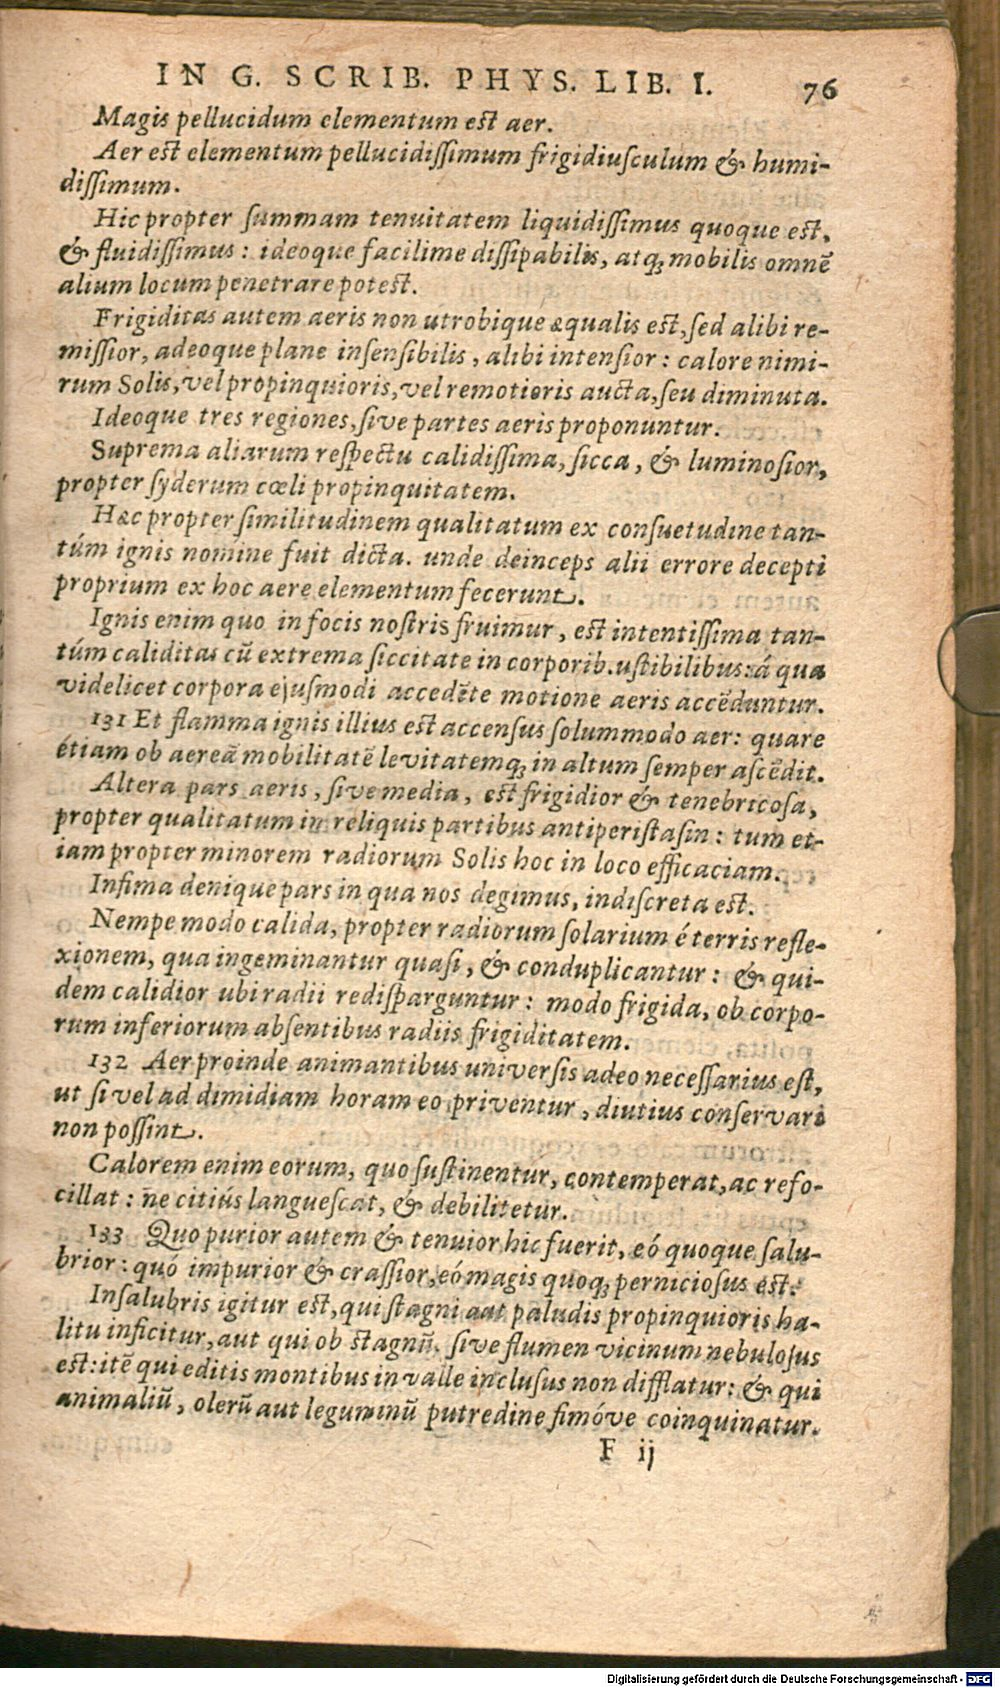 IN G. SCRIB. PHYS. LIB. I. 76
Magis pellucidum elementum est aer.
Aer est elementum pellucidissimum frigidiusculum & humi-
dissimum.
Hic propter summam tenuitatem liquidissimus quoque est,
& fluidissimus: ideoque facilime dissipabilis, atq; mobilis omnē
alium locum penetrare potest.
Frigiditas autem aeris non utrobique æqualis est, sed alibi re-
missior, adeoque plane insensibilis, alibi intensior: calore nimi-
rum Solis, vel propinquioris, vel remotioris aucta, seu diminuta.
Ideoque tres regiones, sive partes aeris proponuntur.
Suprema aliarum respectu calidissima, sicca, & luminosior,
propter syderum cœli propinquitatem.
Hæc propter similitudinem qualitatum ex consuetudine tan-
túm ignis nomine fuit dicta. unde deinceps alii errore decepti
proprium ex hoc aere elementum fecerunt.
Ignis enim quo in focis nostris fruimur, est intentissima tan-
túm caliditas cū extrema siccitate in corporib. ustibilibus: á qua
videlicet corpora ejusmodi accedēte motione aeris accēduntur.
131 Et flamma ignis illius est accensus solummodo aer: quare
étiam ob aereā mobilitatē levitatemq; in altum semper ascēdit.
Altera pars aeris, sive media, est frigidior & tenebricosa,
propter qualitatum in reliquis partibus antiperistasin: tum et-
iam propter minorem radiorum Solis hoc in loco efficaciam.
Infima denique pars in qua nos degimus, indiscreta est.
Nempe modo calida, propter radiorum solarium é terris refle-
xionem, qua ingeminantur quasi, & conduplicantur: & qui-
dem calidior ubi radii redisparguntur: modo frigida, ob corpo-
rum inferiorum absentibus radiis frigiditatem.
132 Aer proinde animantibus universis adeo necessarius est,
ut si vel ad dimidiam horam eo priventur, diutius conservari
non possint.
Calorem enim eorum, quo sustinentur, contemperat, ac refo-
cillat: ne citiús languescat, & debilitetur.
133 Quo purior autem & tenuior hic fuerit, eó quoque salu-
brior: quó impurior & crassior, eó magis quoq; perniciosus est.
Insalubris igitur est, qui stagni aut paludis propinquioris ha-
litu inficitur, aut qui ob stagnū, sive flumen vicinum nebulosus
est: itē qui editis montibus in valle inclusus non difflatur: & qui
animaliū, olerū aut leguminū putredine fimóve coinquinatur.
F ij
Digitalisierung gefördert durch die Deutsche Forschungsgemeinschaft - DFG